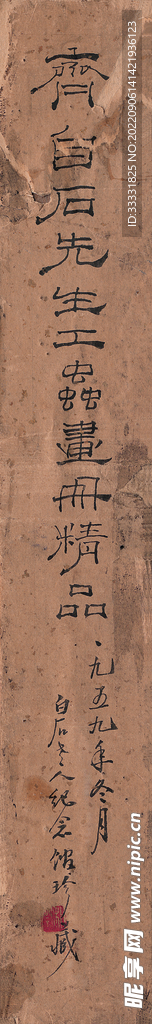 齊白石先生工蟲畫册精品
一九五九年冬月
白石老人纪念館珍藏
ID:33331825 NO:20220906141421936123
昵享网 www.nipic.cn